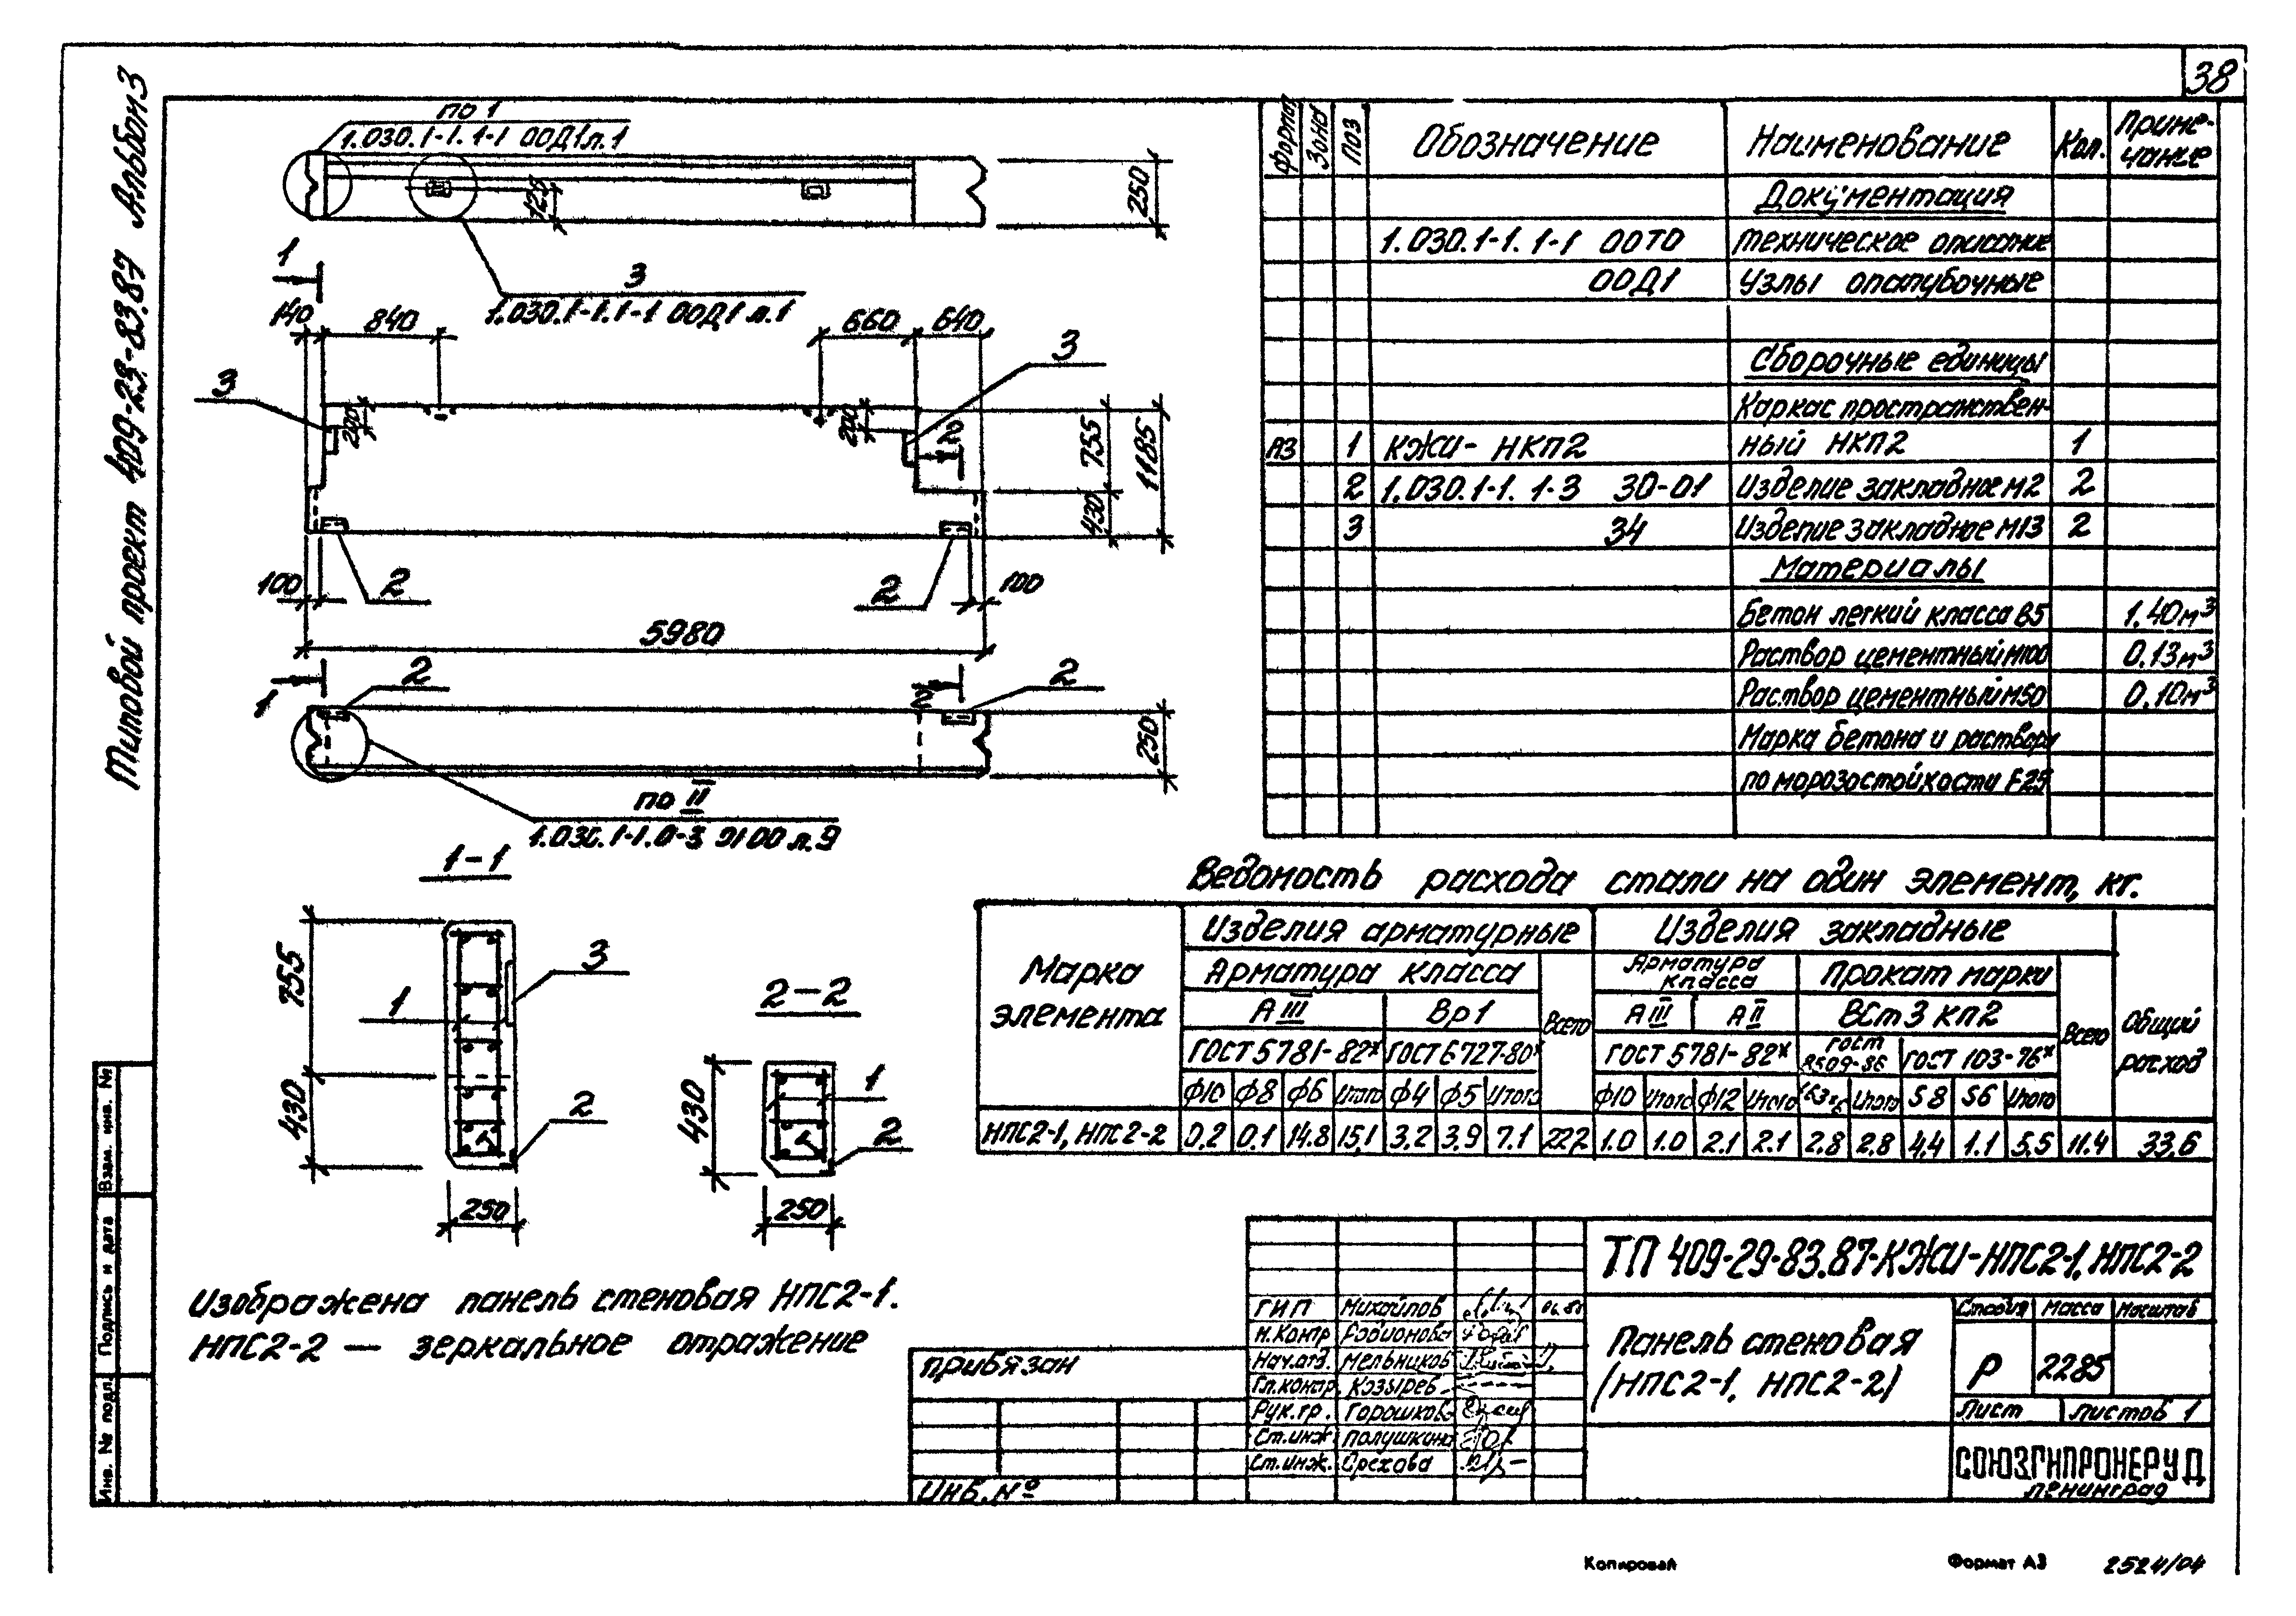 38
Типовой проект 409-29-83.87 Альбом 3
по 1
1.030.1-1.1-1 00Д1 л.1
125
250
1
3
1.030.1-1.1-1 00Д1 л.1
140
840
660
640
3
3
200
200
2
755
1185
430
100
2
2
100
5980
1
2
2
2
250
по II
1.030.1-1.0-3 9100 л.9
1-1
755
430
1
3
2
250
2-2
430
1
2
250
Изображена панель стеновая НПС2-1.
НПС2-2 — зеркальное отражение
Формат Зона Поз Обозначение Наименование Кол. Приме-
чание
Документация
1.030.1-1. 1-1 00ТО Техническое описание
00Д1 Узлы опалубочные
Сборочные единицы
Каркас пространствен-
А3 1 КЖИ- НКП2 ный НКП2 1
2 1.030.1-1. 1-3 30-01 Изделие закладное М2 2
3 34 Изделие закладное М13 2
Материалы
Бетон легкий класса В5 1.40м³
Раствор цементный М100 0.13м³
Раствор цементный М50 0.10м³
Марка бетона и раствора
по морозостойкости F25
Ведомость расхода стали на один элемент, кг.
Марка элемента
Изделия арматурные Изделия закладные Общий расход
Арматура класса Всего Арматура класса Прокат марки Всего
А III Вр1 А III А II ВСт3 кп2
ГОСТ 5781-82* ГОСТ 6727-80* ГОСТ 5781-82* ГОСТ 8509-86 ГОСТ 103-76*
Ф10 Ф8 Ф6 Итого Ф4 Ф5 Итого Ф10 Итого Ф12 Итого Итого S8 S6 Итого
НПС2-1, НПС2-2 0.2 0.1 14.8 15.1 3.2 3.9 7.1 22.2 1.0 1.0 2.1 2.1 2.8 2.8 4.4 1.1 5.5 11.4 33.6
ТП 409-29-83.87-КЖИ-НПС2-1, НПС2-2
ГИП Михайлов
Н.контр Родионова
Нач.отд. Мельников
Гл.контр. Козырев
Рук.гр. Горошков
Ст.инж. Полушкина
Ст.инж. Орехова
Панель стеновая
(НПС2-1, НПС2-2)
Стадия Масса Масштаб
Р 2285
Лист Листов 1
СОЮЗГИПРОНЕРУД
Ленинград
Привязан
Инв. №
Взам. инв. №
Подпись и дата
Инв. № подл.
Копировал
Формат А3
2524/04